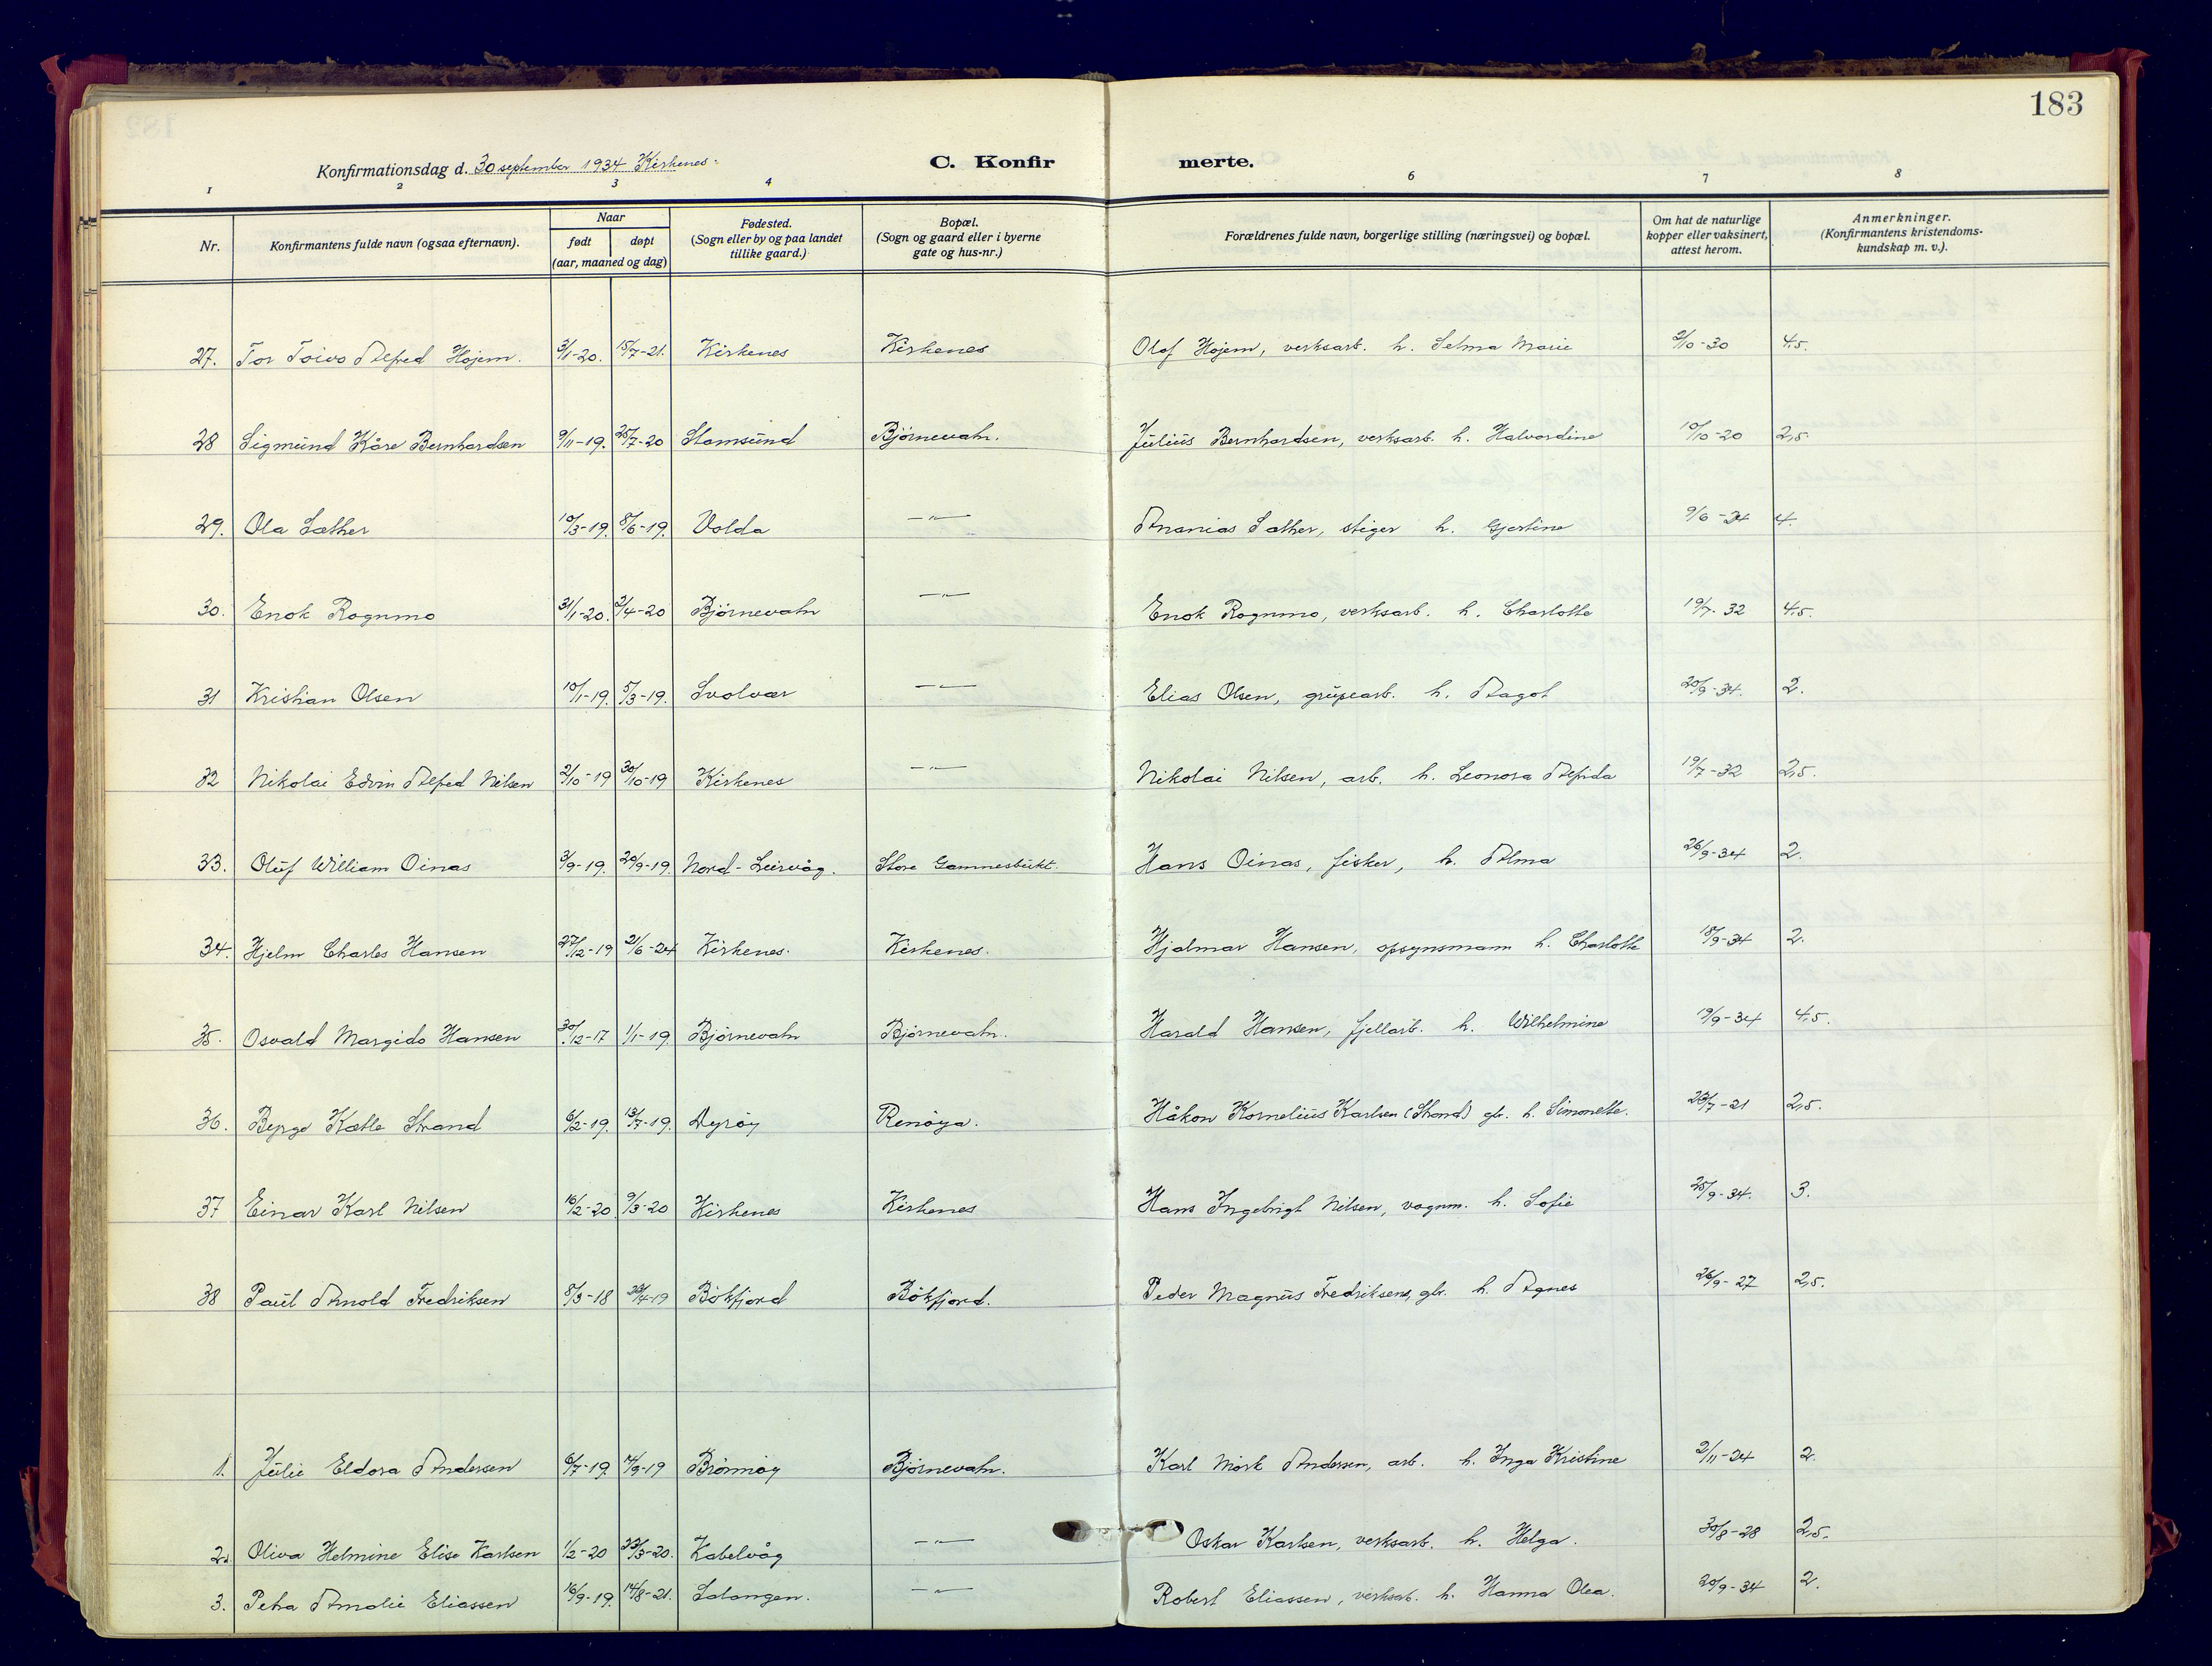 183
Konfirmationsdag d. 30 september 1934 Kirkenes.
C. Konfir merte.
1 2 3 4 6 7 8
Nr. Konfirmantens fulde navn (ogsaa efternavn). Naar født døpt (aar, maaned og dag) Fødested. (Sogn eller by og paa landet tillike gaard.) Bopæl. (Sogn og gaard eller i byerne gate og hus-nr.) Forældrenes fulde navn, borgerlige stilling (næringsvei) og bopæl. Om hat de naturlige kopper eller vaksinert, attest herom. Anmerkninger. (Konfirmantens kristendoms-kundskap m. v.).
27. Tor Toivo Alfred Hojem. 3/1-20. 15/7-21. Kirkenes Kirkenes Olof Hojem, verksarb. h. Selma Marie 2/10-30 4,5.
28 Sigmund Kåre Bernhardsen 9/11-19. 25/7-20 Stamsund Bjørnevatn. Julius Bernhardsen, verksarb. h. Halvardine 10/10-20 2,5.
29. Ola Sæther 10/3-19. 8/6-19. Volda —"— Ananias Sæther, stiger h. Gjertine 9/6-24 4.
30. Enok Rognmo 31/1-20. 2/4-20 Bjørnevatn —"— Enok Rognmo, verksarb. h. Charlotte 19/7-32 4,5.
31 Kristian Olsen 10/1-19. 5/3-19. Svolvær —"— Elias Olsen, grubearb. h. Dagot 20/9-34. 2.
32 Nikolai Edvin Alfred Nilsen 2/10-19 30/10-19 Kirkenes —"— Nikolai Nilsen, arb. h. Leonora Alfida 19/7-32 2,5.
33. Oluf William Oinas 3/9-19. 20/9-19. Nord-Leirvåg. Store Gamnesbukt. Hans Oinas, fisker, h. Alma 26/9-34 2.
34. Hjelm Charles Hansen 27/12-19 2/6-24 Kirkenes. Kirkenes. Hjalmar Hansen, opsynsmann h. Charlotte 18/9-34 2.
35. Osvald Margido Hansen 30/12-17 1/1-19. Bjørnevatn Bjørnevatn. Harald Hansen, fjellarb. h. Wilhelmine 19/9-34 4,5.
36. Børge Kåtle Strand 6/2-19. 13/7-19. Dyrøy Renøya. Håkon Kornelius Karlsen (Strand) gbr. h. Simonette. 23/7-21 2,5.
37 Einar Karl Nilsen 16/2-20 9/3-20 Kirkenes Kirkenes Hans Ingebrigt Nilsen, vognm. h. Sofie 25/9-34. 3.
38 Paul Arnold Fredriksen 8/3-18 /4-19 Bøkfjord Bøkfjord. Peder Magnus Fredriksen, gbr. h. Agnes 26/9-27 2,5.
1. Julie Eldora Andersen 6/7-19. /9-19 Brønnøy Bjørnevatn. Karl Mørk Andersen, arb. h. Inga Kristine 2/11-24 2.
2. Oliva Helmine Elise Karlsen 1/2-20 23/3-20. Kabelvåg —"— Oskar Karlsen, verksarb. h. Helga. 30/8-28 2,5.
3. Petra Amalie Eliassen 16/9-19. 14/8-21. Salangen. —"— Robert Eliassen, verksarb. h. Hanna Olea. 20/9-34 2.